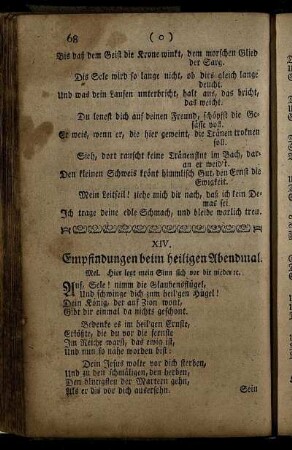 68 ( o )
Bis daß dem Geist die Krone winkt, dem morschen Glied
der Sarg.
Dis Sele wird so lange nicht, ob dies gleich lange
deucht.
Und was dein Laufen unterbricht, halt aus, das bricht,
das weicht.
Du lenest dich auf deinen Freund, schöpfst die Ge-
fässe voll.
Er weis, wenn er, die hier geweint, die Tränen troknen
soll.
Sieh, dort rauscht keine Tränenflut im Bach, dar-
an er weidet.
Den kleinen Schweis krönt himmlisch Gut, den Ernst die
Ewigkeit.
Mein Leitseil! ziehe mich dir nach, daß ich kein De-
mas sei
Ich trage deine edle Schmach, und bleibe warlich treu.
XIV.
Empfindungen beim heiligen Abendmal.
Mel. Hier legt mein Sinn sich vor dir nieder ꝛc.
Auf, Sele! nimm die Glaubensflügel,
Und schwinge dich zum heilgen Hügel!
Dein König, der auf Zion wont,
Gibt dir einmal da nichts geschont.
Bedenke es im heilgen Ernste,
Erlößte, die du vor die fernste
Im Reiche warst, das ewig ist,
Und nun so nahe worden bist:
Dein Jesus wolte vor dich sterben,
Und zu den schmäligen, den herben,
Den blutigsten der Martern gehn,
Als er dis vor dich ausersehn.
Sein